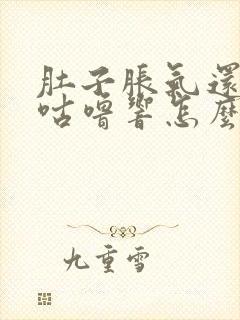 肚子脹氣還
咕嚕響怎麼
九重雪